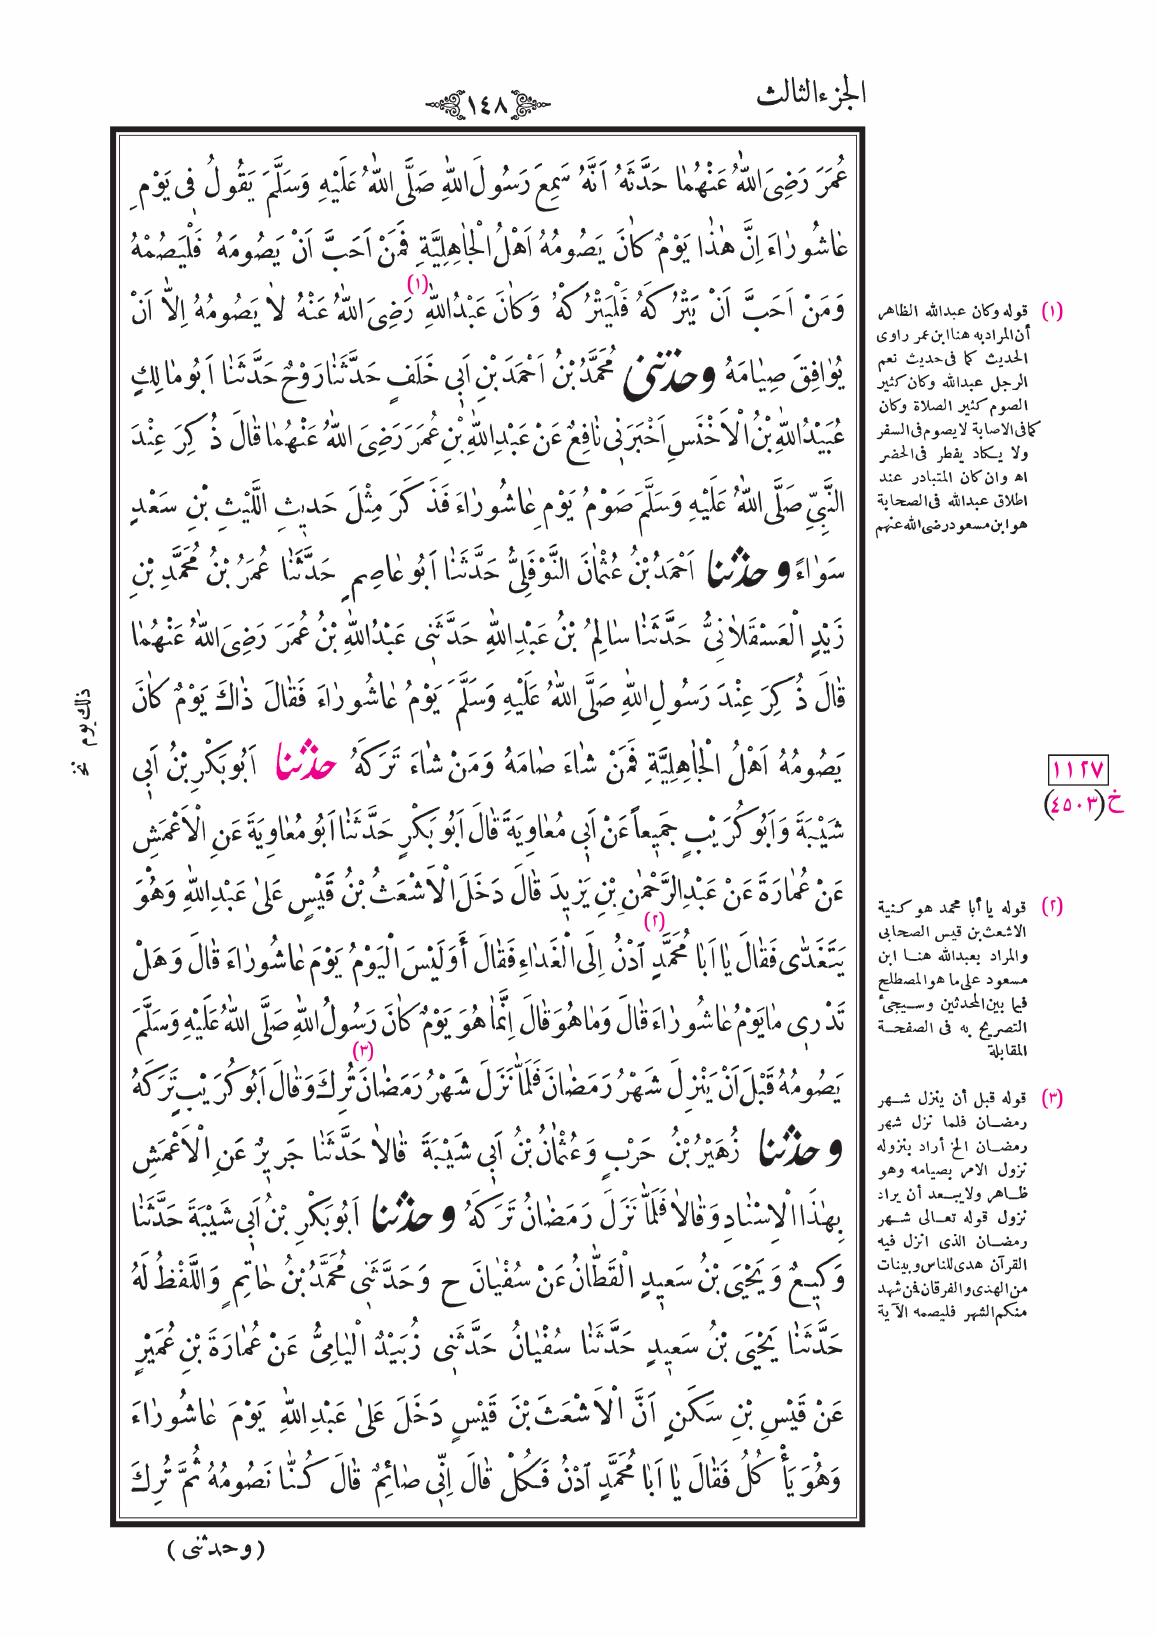 الجزء الثالث
١٤٨
عُمَرَ رَضِيَ اللّٰهُ عَنْهُمَا حَدَّثَهُ اَنَّهُ سَمِعَ رَسُولَ اللّٰهِ صَلَّى اللّٰهُ عَلَيْهِ وَسَلَّمَ يَقُولُ فِي يَوْمِ
عَاشُورَاءَ اِنَّ هٰذَا يَوْمٌ كَانَ يَصُومُهُ اَهْلُ الْجَاهِلِيَّةِ فَمَنْ اَحَبَّ اَنْ يَصُومَهُ فَلْيَصُمْهُ
وَمَنْ اَحَبَّ اَنْ يَتْرُكَهُ فَلْيَتْرُكْهُ وَكَانَ عَبْدُ اللّٰهِ (١) رَضِيَ اللّٰهُ عَنْهُ لَا يَصُومُهُ اِلَّا اَنْ
يُوَافِقَ صِيَامَهُ وحدثنى مُحَمَّدُ بْنُ اَحْمَدَ بْنِ اَبِي خَلَفٍ حَدَّثَنَا رَوْحٌ حَدَّثَنَا اَبُو مَالِكٍ
عُبَيْدُ اللّٰهِ بْنُ الْاَخْنَسِ اَخْبَرَنِي نَافِعٌ عَنْ عَبْدِ اللّٰهِ بْنِ عُمَرَ رَضِيَ اللّٰهُ عَنْهُمَا قَالَ ذُكِرَ عِنْدَ
النَّبِيِّ صَلَّى اللّٰهُ عَلَيْهِ وَسَلَّمَ صَوْمُ يَوْمِ عَاشُورَاءَ فَذَكَرَ مِثْلَ حَدِيثِ اللَّيْثِ بْنِ سَعْدٍ
سَوَاءً وحدثنا اَحْمَدُ بْنُ عُثْمَانَ النَّوْفَلِيُّ حَدَّثَنَا اَبُو عَاصِمٍ حَدَّثَنَا عُمَرُ بْنُ مُحَمَّدِ بْنِ
زَيْدٍ الْعَسْقَلَانِيُّ حَدَّثَنَا سَالِمُ بْنُ عَبْدِ اللّٰهِ حَدَّثَنِي عَبْدُ اللّٰهِ بْنُ عُمَرَ رَضِيَ اللّٰهُ عَنْهُمَا
قَالَ ذُكِرَ عِنْدَ رَسُولِ اللّٰهِ صَلَّى اللّٰهُ عَلَيْهِ وَسَلَّمَ يَوْمُ عَاشُورَاءَ فَقَالَ ذَاكَ يَوْمٌ كَانَ
يَصُومُهُ اَهْلُ الْجَاهِلِيَّةِ فَمَنْ شَاءَ صَامَهُ وَمَنْ شَاءَ تَرَكَهُ حدثنا اَبُو بَكْرِ بْنُ اَبِي
شَيْبَةَ وَاَبُو كُرَيْبٍ جَمِيعاً عَنْ اَبِي مُعَاوِيَةَ قَالَ اَبُو بَكْرٍ حَدَّثَنَا اَبُو مُعَاوِيَةَ عَنِ الْاَعْمَشِ
عَنْ عُمَارَةَ عَنْ عَبْدِ الرَّحْمٰنِ بْنِ يَزِيدَ قَالَ دَخَلَ الْاَشْعَثُ بْنُ قَيْسٍ عَلَى عَبْدِ اللّٰهِ وَهْوَ
يَتَغَدَّى فَقَالَ يَا اَبَا مُحَمَّدٍ (٢) اُدْنُ اِلَى الْغَدَاءِ فَقَالَ أَوَلَيْسَ الْيَوْمُ يَوْمَ عَاشُورَاءَ قَالَ وَهَلْ
تَدْرِي مَا يَوْمُ عَاشُورَاءَ قَالَ وَمَا هُوَ قَالَ اِنَّمَا هُوَ يَوْمٌ كَانَ رَسُولُ اللّٰهِ صَلَّى اللّٰهُ عَلَيْهِ وَسَلَّمَ
يَصُومُهُ قَبْلَ اَنْ يَنْزِلَ شَهْرُ رَمَضَانَ فَلَمَّا نَزَلَ شَهْرُ رَمَضَانَ (٣) تُرِكَ وَقَالَ اَبُو كُرَيْبٍ تَرَكَهُ
وحدثنا زُهَيْرُ بْنُ حَرْبٍ وَعُثْمَانُ بْنُ اَبِي شَيْبَةَ قَالَا حَدَّثَنَا جَرِيرٌ عَنِ الْاَعْمَشِ
بِهٰذَا الْاِسْنَادِ وَقَالَا فَلَمَّا نَزَلَ رَمَضَانُ تَرَكَهُ وحدثنا اَبُو بَكْرِ بْنُ اَبِي شَيْبَةَ حَدَّثَنَا
وَكِيعٌ وَيَحْيَى بْنُ سَعِيدٍ الْقَطَّانُ عَنْ سُفْيَانَ ح وَحَدَّثَنِي مُحَمَّدُ بْنُ حَاتِمٍ وَاللَّفْظُ لَهُ
حَدَّثَنَا يَحْيَى بْنُ سَعِيدٍ حَدَّثَنَا سُفْيَانُ حَدَّثَنِي زُبَيْدٌ الْيَامِيُّ عَنْ عُمَارَةَ بْنِ عُمَيْرٍ
عَنْ قَيْسِ بْنِ سَكَنٍ اَنَّ الْاَشْعَثَ بْنَ قَيْسٍ دَخَلَ عَلَى عَبْدِ اللّٰهِ يَوْمَ عَاشُورَاءَ
وَهْوَ يَأْكُلُ فَقَالَ يَا اَبَا مُحَمَّدٍ اُدْنُ فَكُلْ قَالَ اِنِّي صَائِمٌ قَالَ كُنَّا نَصُومُهُ ثُمَّ تُرِكَ
(وحدثنى)
(١) قوله وكان عبدالله الظاهر
أن المراد به هنا ابن عمر راوى
الحديث كما فى حديث نعم
الرجل عبدالله وكان كثير
الصوم كثير الصلاة وكان
كما فى الاصابة لا يصوم فى السفر
ولا يكاد يفطر فى الحضر
اه وان كان المتبادر عند
اطلاق عبدالله فى الصحابة
هو ابن مسعود رضى الله عنهم
١١٢٧
خ (٤٥٠٣)
(٢) قوله يا أبا محمد هو كنية
الاشعث بن قيس الصحابى
والمراد بعبدالله هنا ابن
مسعود على ما هو المصطلح
فيما بين المحدثين وسيجئ
التصريح به فى الصفحة
المقابلة
(٣) قوله قبل أن ينزل شهر
رمضان فلما نزل شهر
رمضان الخ أراد بنزوله
نزول الامر بصيامه وهو
ظاهر ولا يبعد أن يراد
نزول قوله تعالى شهر
رمضان الذى انزل فيه
القرآن هدى للناس وبينات
من الهدى والفرقان فمن شهد
منكم الشهر فليصمه الآية
ذلك يوم نخ